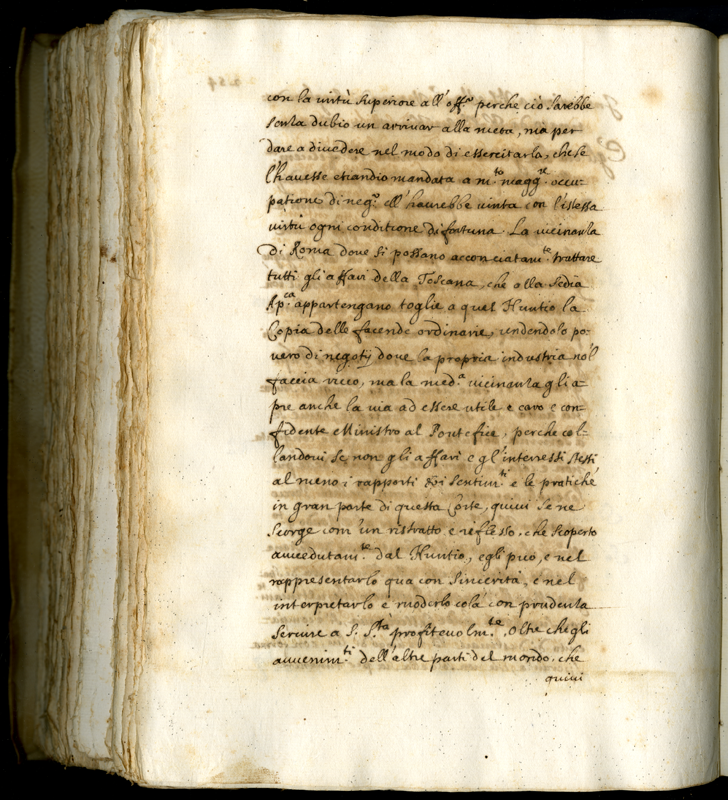 con la virtù superiore all' off.º perche ciò sarebbe
senza dubio un arrivar alla meta, ma per
dare a divedere nel modo di essercitarla, che se
l'havesse etiandio mandata a m.to magg.re occu-
patione di neg.º ell' haurebbe vinta con l'istessa
virtù ogni conditione di fortuna. La vicinanza
di Roma dove si possano acconciatam.te trattare
tutti gli affari della Toscana, che alla Sedia
Ap.ca appartengano toglie a quel Nuntio la
Copia delle facende ordinarie, rendendolo po-
vero di negotij dove la propria industria nol
faccia ricco, ma la med.a vicinanza gli a-
pre anche la via ad essere utile e caro e con-
fidente Ministro al Pontefice, perche col-
landovi se non gli affari e gl'interessi stessi
al meno i rapporti dei sentim.ti e le pratiche
in gran parte di questa Corte, quivi se ne
scorge com' un ristratto e reflesso, che scoperto
avvedutam.te dal Nuntio, egli può, e nel
rappresentarlo qua con sincerità, e nel
interpretarlo e renderlo colà con prudenza
servire a S. S.tà profitevolm.te. Oltre che gli
avvenim.ti dell'altre parti del mondo, che
quivi